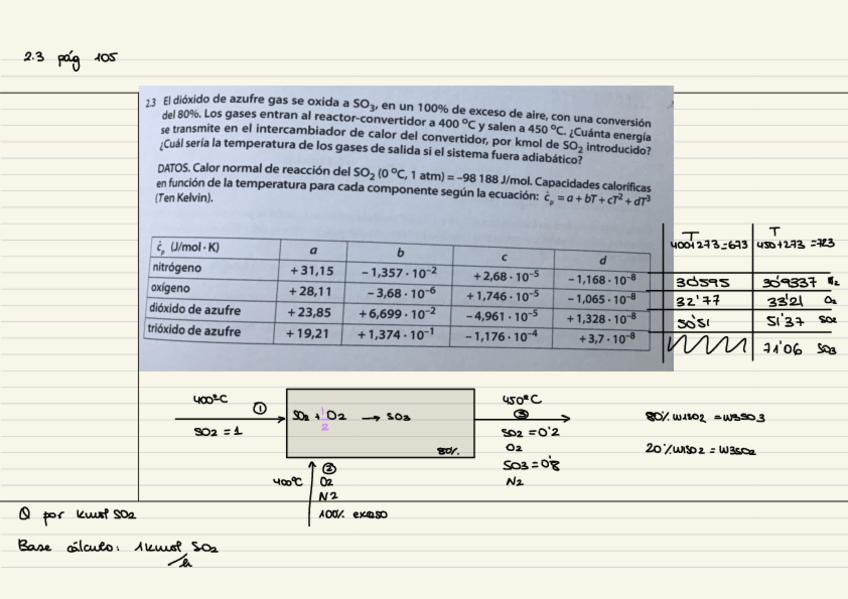 2.3 pág 105
2.3 El dióxido de azufre gas se oxida a SO₃, en un 100% de exceso de aire, con una conversión
del 80%. Los gases entran al reactor-convertidor a 400 ºC y salen a 450 ºC. ¿Cuánta energía
se transmite en el intercambiador de calor del convertidor, por kmol de SO₂ introducido?
¿Cuál sería la temperatura de los gases de salida si el sistema fuera adiabático?
DATOS. Calor normal de reacción del SO₂ (0 ºC, 1 atm) = –98 188 J/mol. Capacidades caloríficas
en función de la temperatura para cada componente según la ecuación: ĉₚ = a + bT + cT² + dT³
(T en Kelvin).
T T
400+273=673 450+273=723
ĉₚ (J/mol · K) a b c d
nitrógeno +31,15 –1,357 · 10⁻² +2,68 · 10⁻⁵ –1,168 · 10⁻⁸ 30'595 30'9337 N2
oxígeno +28,11 –3,68 · 10⁻⁶ +1,746 · 10⁻⁵ –1,065 · 10⁻⁸ 32'77 33'21 O2
dióxido de azufre +23,85 +6,699 · 10⁻² –4,961 · 10⁻⁵ +1,328 · 10⁻⁸ 50'51 51'37 SO2
trióxido de azufre +19,21 +1,374 · 10⁻¹ –1,176 · 10⁻⁴ +3,7 · 10⁻⁸ 71'06 SO3
400ºC 450ºC
① SO2 + 1/2 O2 → SO3 ③ 80% W1SO2 = W3SO3
SO2 = 1 SO2 = 0'2
80% O2 20% W1SO2 = W3SO2
② SO3 = 0'8
400ºC O2 N2
N2
Q por kmol SO2 100% exceso
Base cálculo: 1 kmol SO2
/h